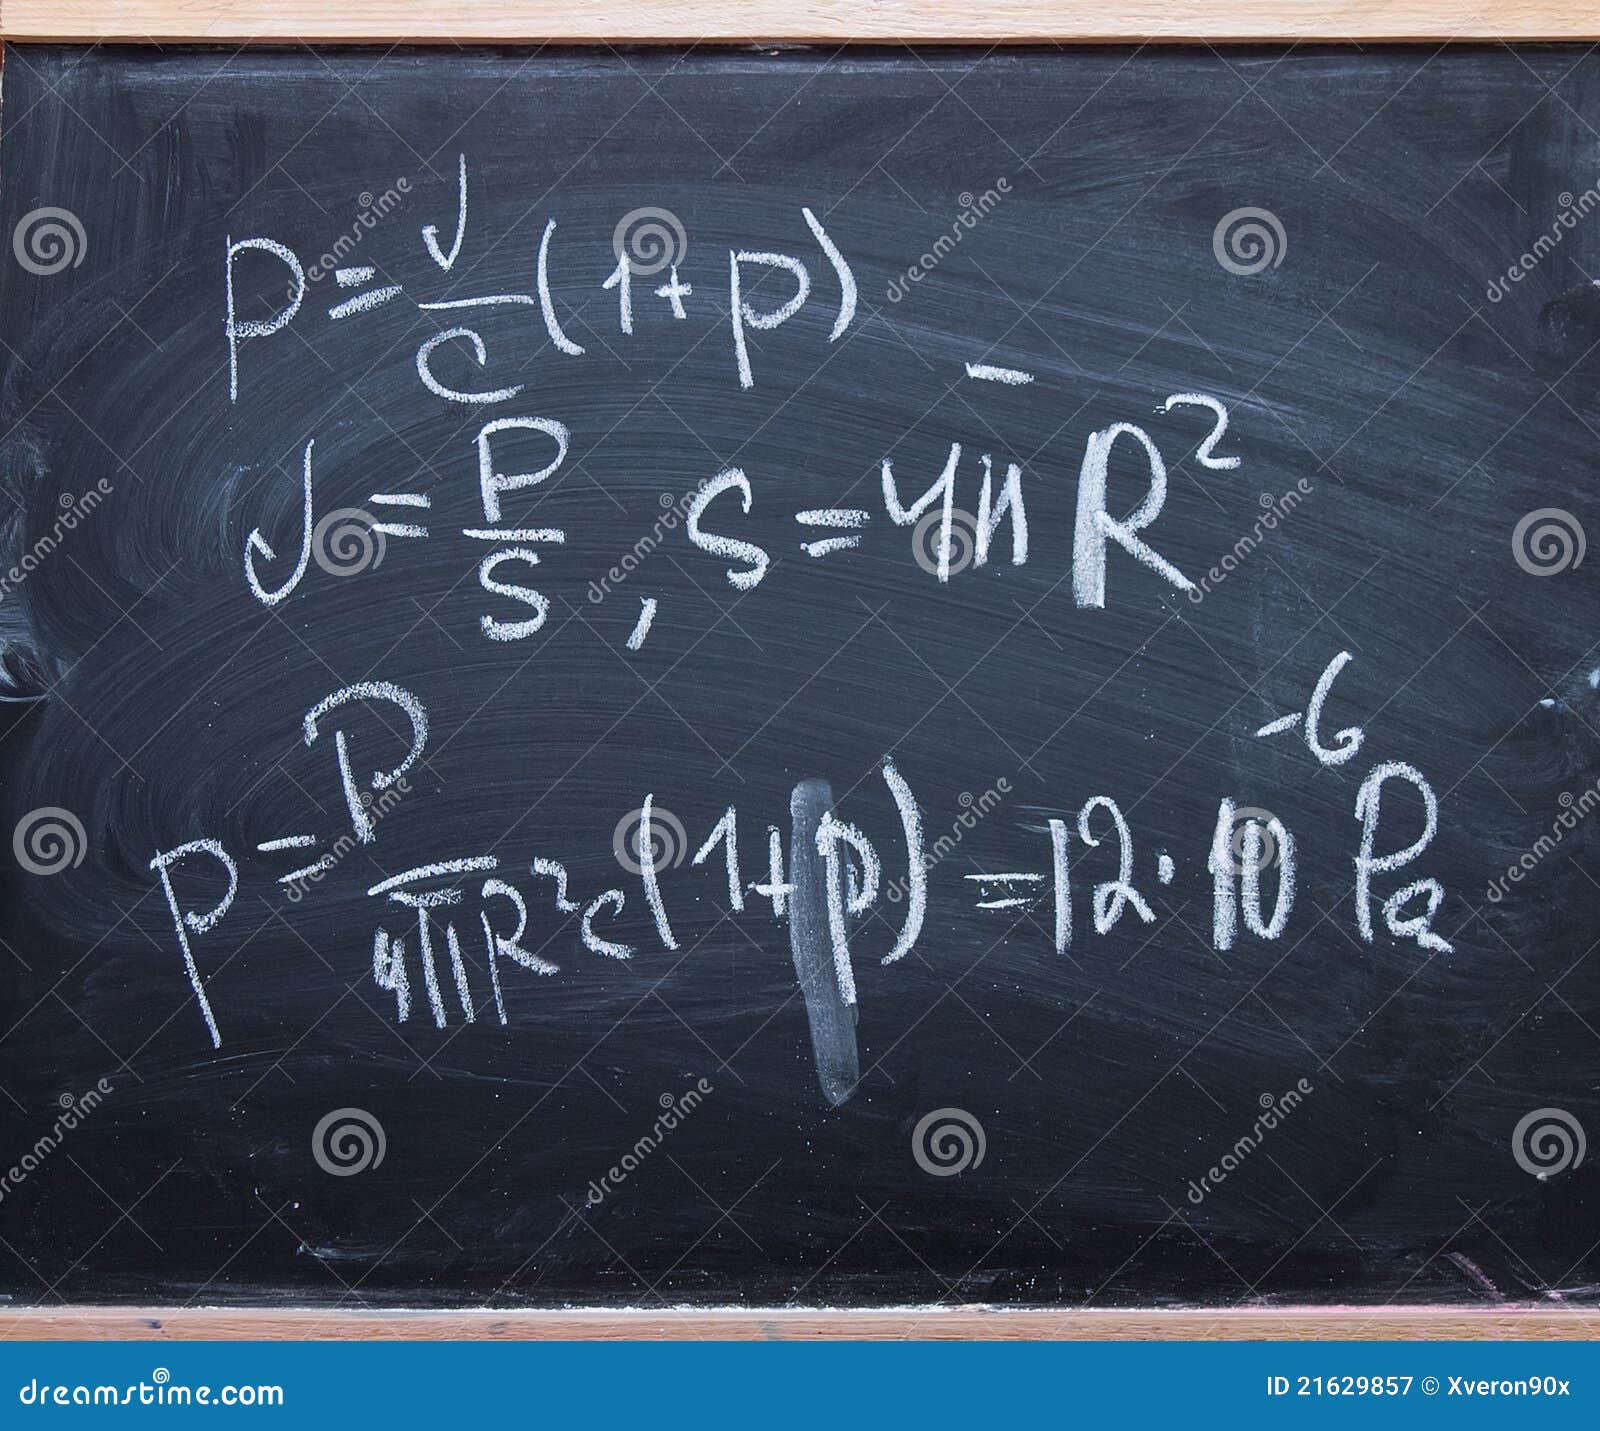 P = J/C (1+p) -
J = P/S , S = 4π R²
P = P/4πR²c (1+p) = 12·10⁻⁶ Pa
dreamstime.com
ID 21629857 © Xveron90x